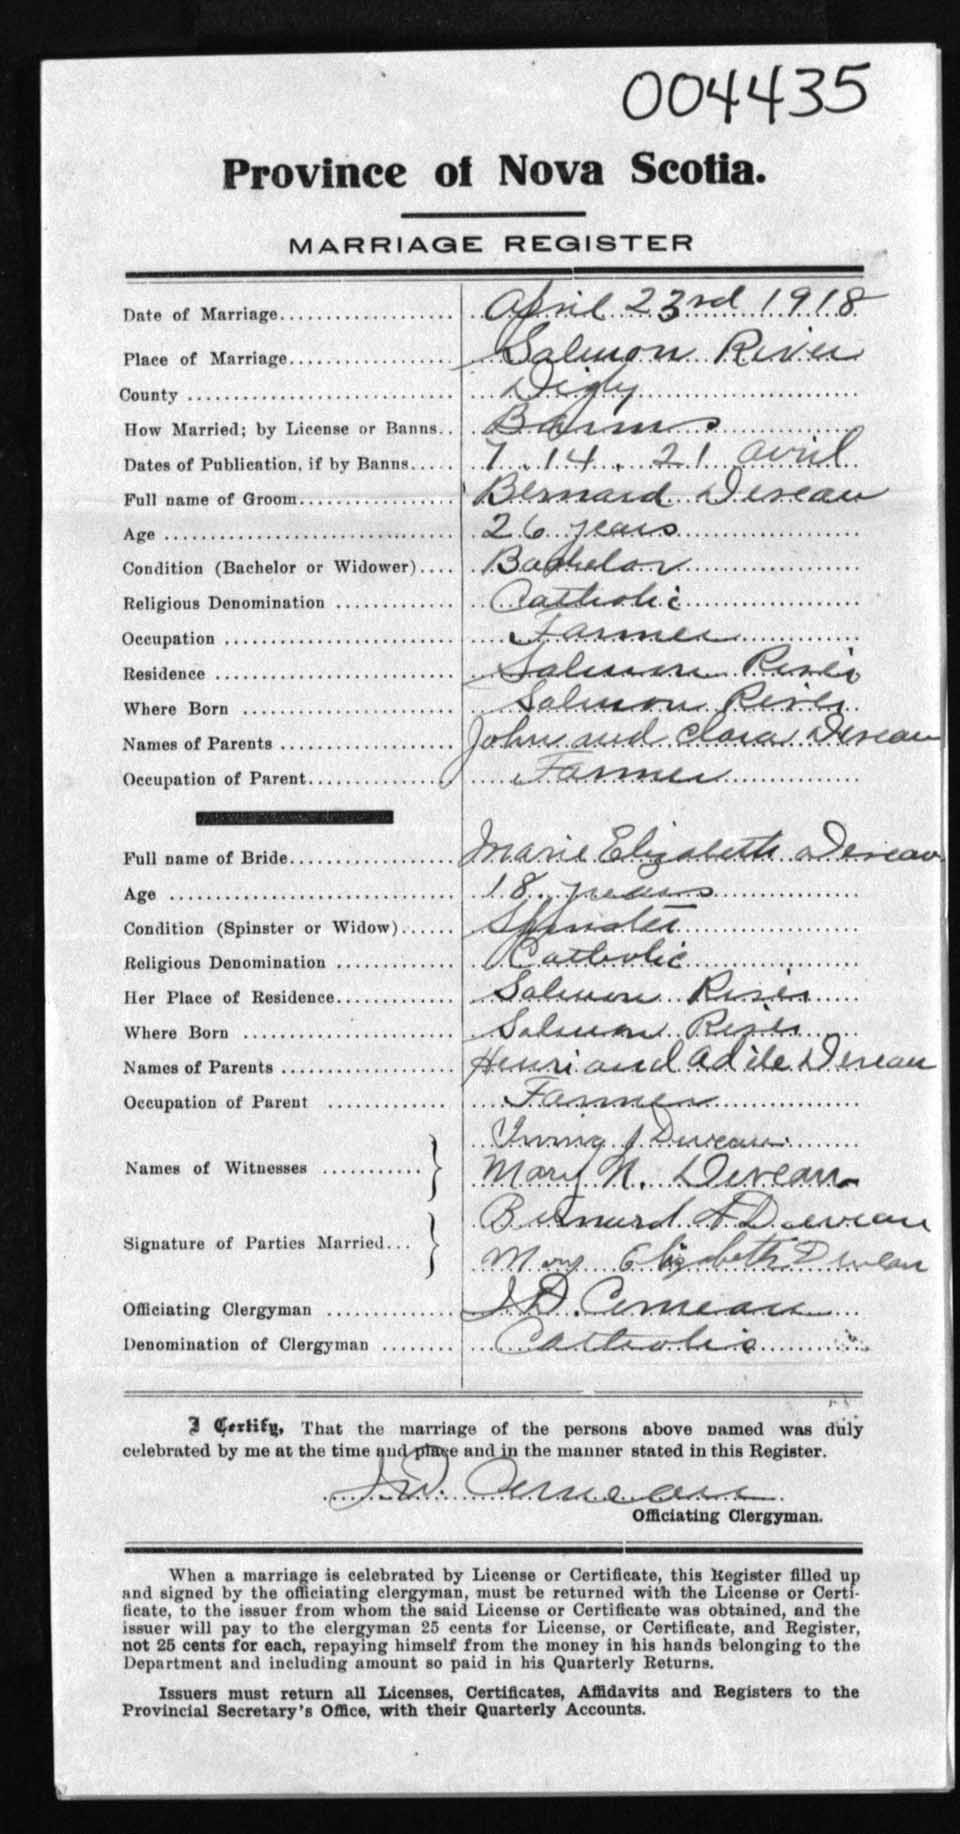 004435
Province of Nova Scotia.
MARRIAGE REGISTER
Date of Marriage................... April 23rd 1918
Place of Marriage.................. Salmon River
County ............................. Digby
How Married; by License or Banns.. Banns
Dates of Publication, if by Banns..... 7. 14. 21 avril
Full name of Groom................. Bernard Deveau
Age ................................ 26 years
Condition (Bachelor or Widower).... Bachelor
Religious Denomination ............. Catholic
Occupation ......................... Farmer
Residence .......................... Salmon River
Where Born ....................... Salmon River
Names of Parents ................... John and Clara Deveau
Occupation of Parent................ Farmer
Full name of Bride.................. Marie Elizabeth Deveau
Age ............................... 18 years
Condition (Spinster or Widow)...... Spinster
Religious Denomination ............. Catholic
Her Place of Residence............. Salmon River
Where Born ....................... Salmon River
Names of Parents ................... Henri and Adile Deveau
Occupation of Parent ............. Farmer
Irving J Deveau
Names of Witnesses ........... } Mary N. Deveau
Bernard A Deveau
Signature of Parties Married... } Mary Elizabeth Deveau
Officiating Clergyman .............. J D. Comeau
Denomination of Clergyman ........ Catholic
I Certify, That the marriage of the persons above named was duly
celebrated by me at the time and place and in the manner stated in this Register.
J D. Comeau
Officiating Clergyman.
When a marriage is celebrated by License or Certificate, this Register filled up
and signed by the officiating clergyman, must be returned with the License or Certi-
ficate, to the issuer from whom the said License or Certificate was obtained, and the
issuer will pay to the clergyman 25 cents for License, or Certificate, and Register,
not 25 cents for each, repaying himself from the money in his hands belonging to the
Department and including amount so paid in his Quarterly Returns.
Issuers must return all Licenses, Certificates, Affidavits and Registers to the
Provincial Secretary's Office, with their Quarterly Accounts.